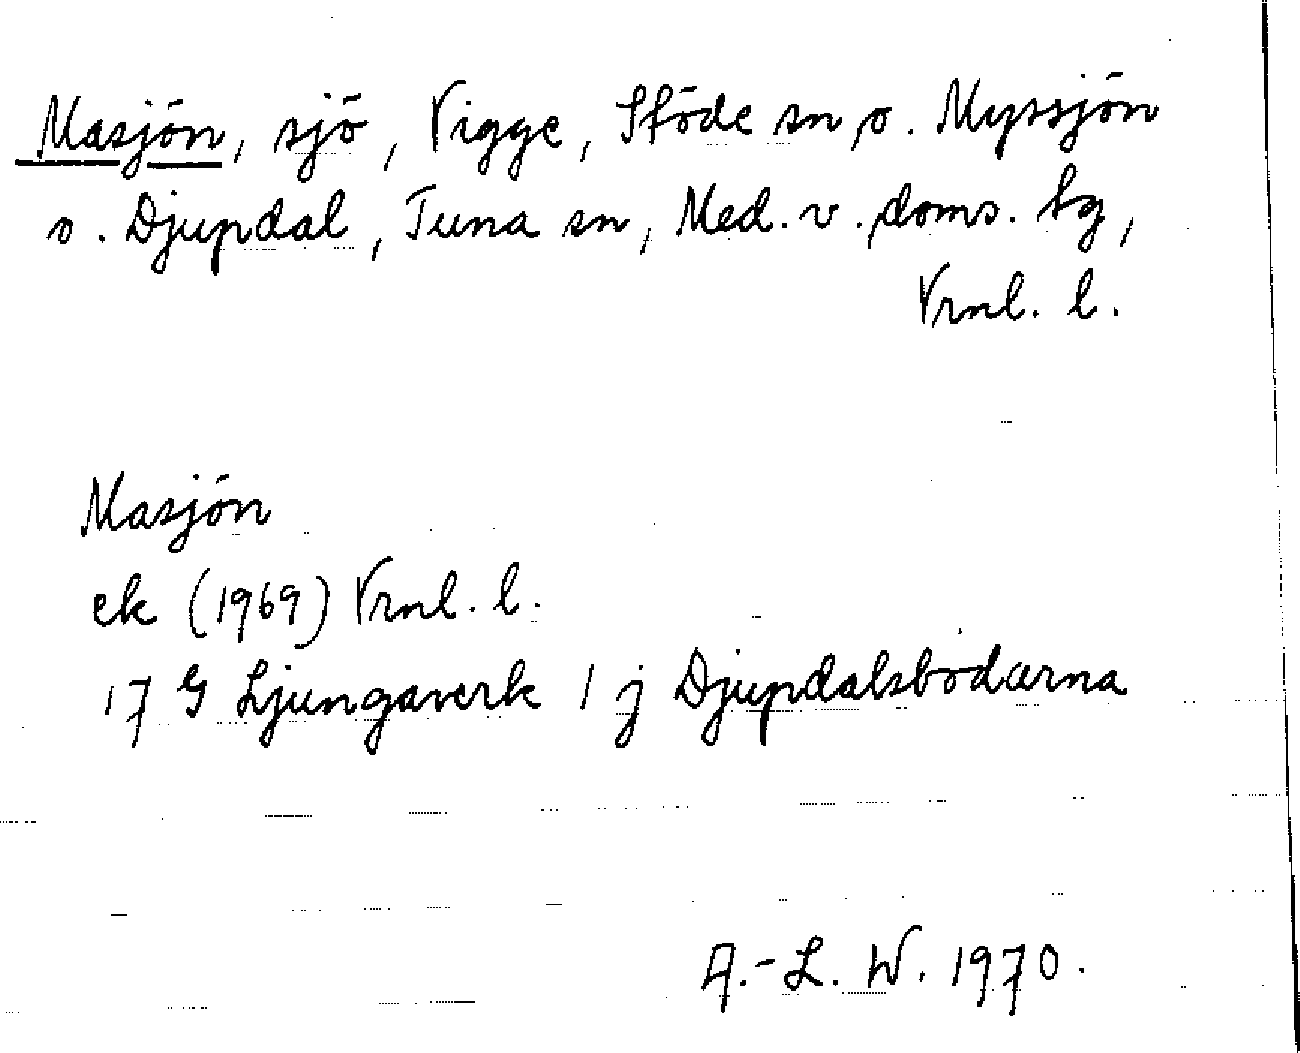 Masjön, sjö, Vigge, Stöde sn, o. Myssjön
o. Djupdal, Tuna sn, Med. v. doms. tg,
Vrnl. l.
Masjön
ek (1969) Vrnl. l.
17 G Ljungaverk 1 j Djupdalsbodarna
A.-L. W. 1970.